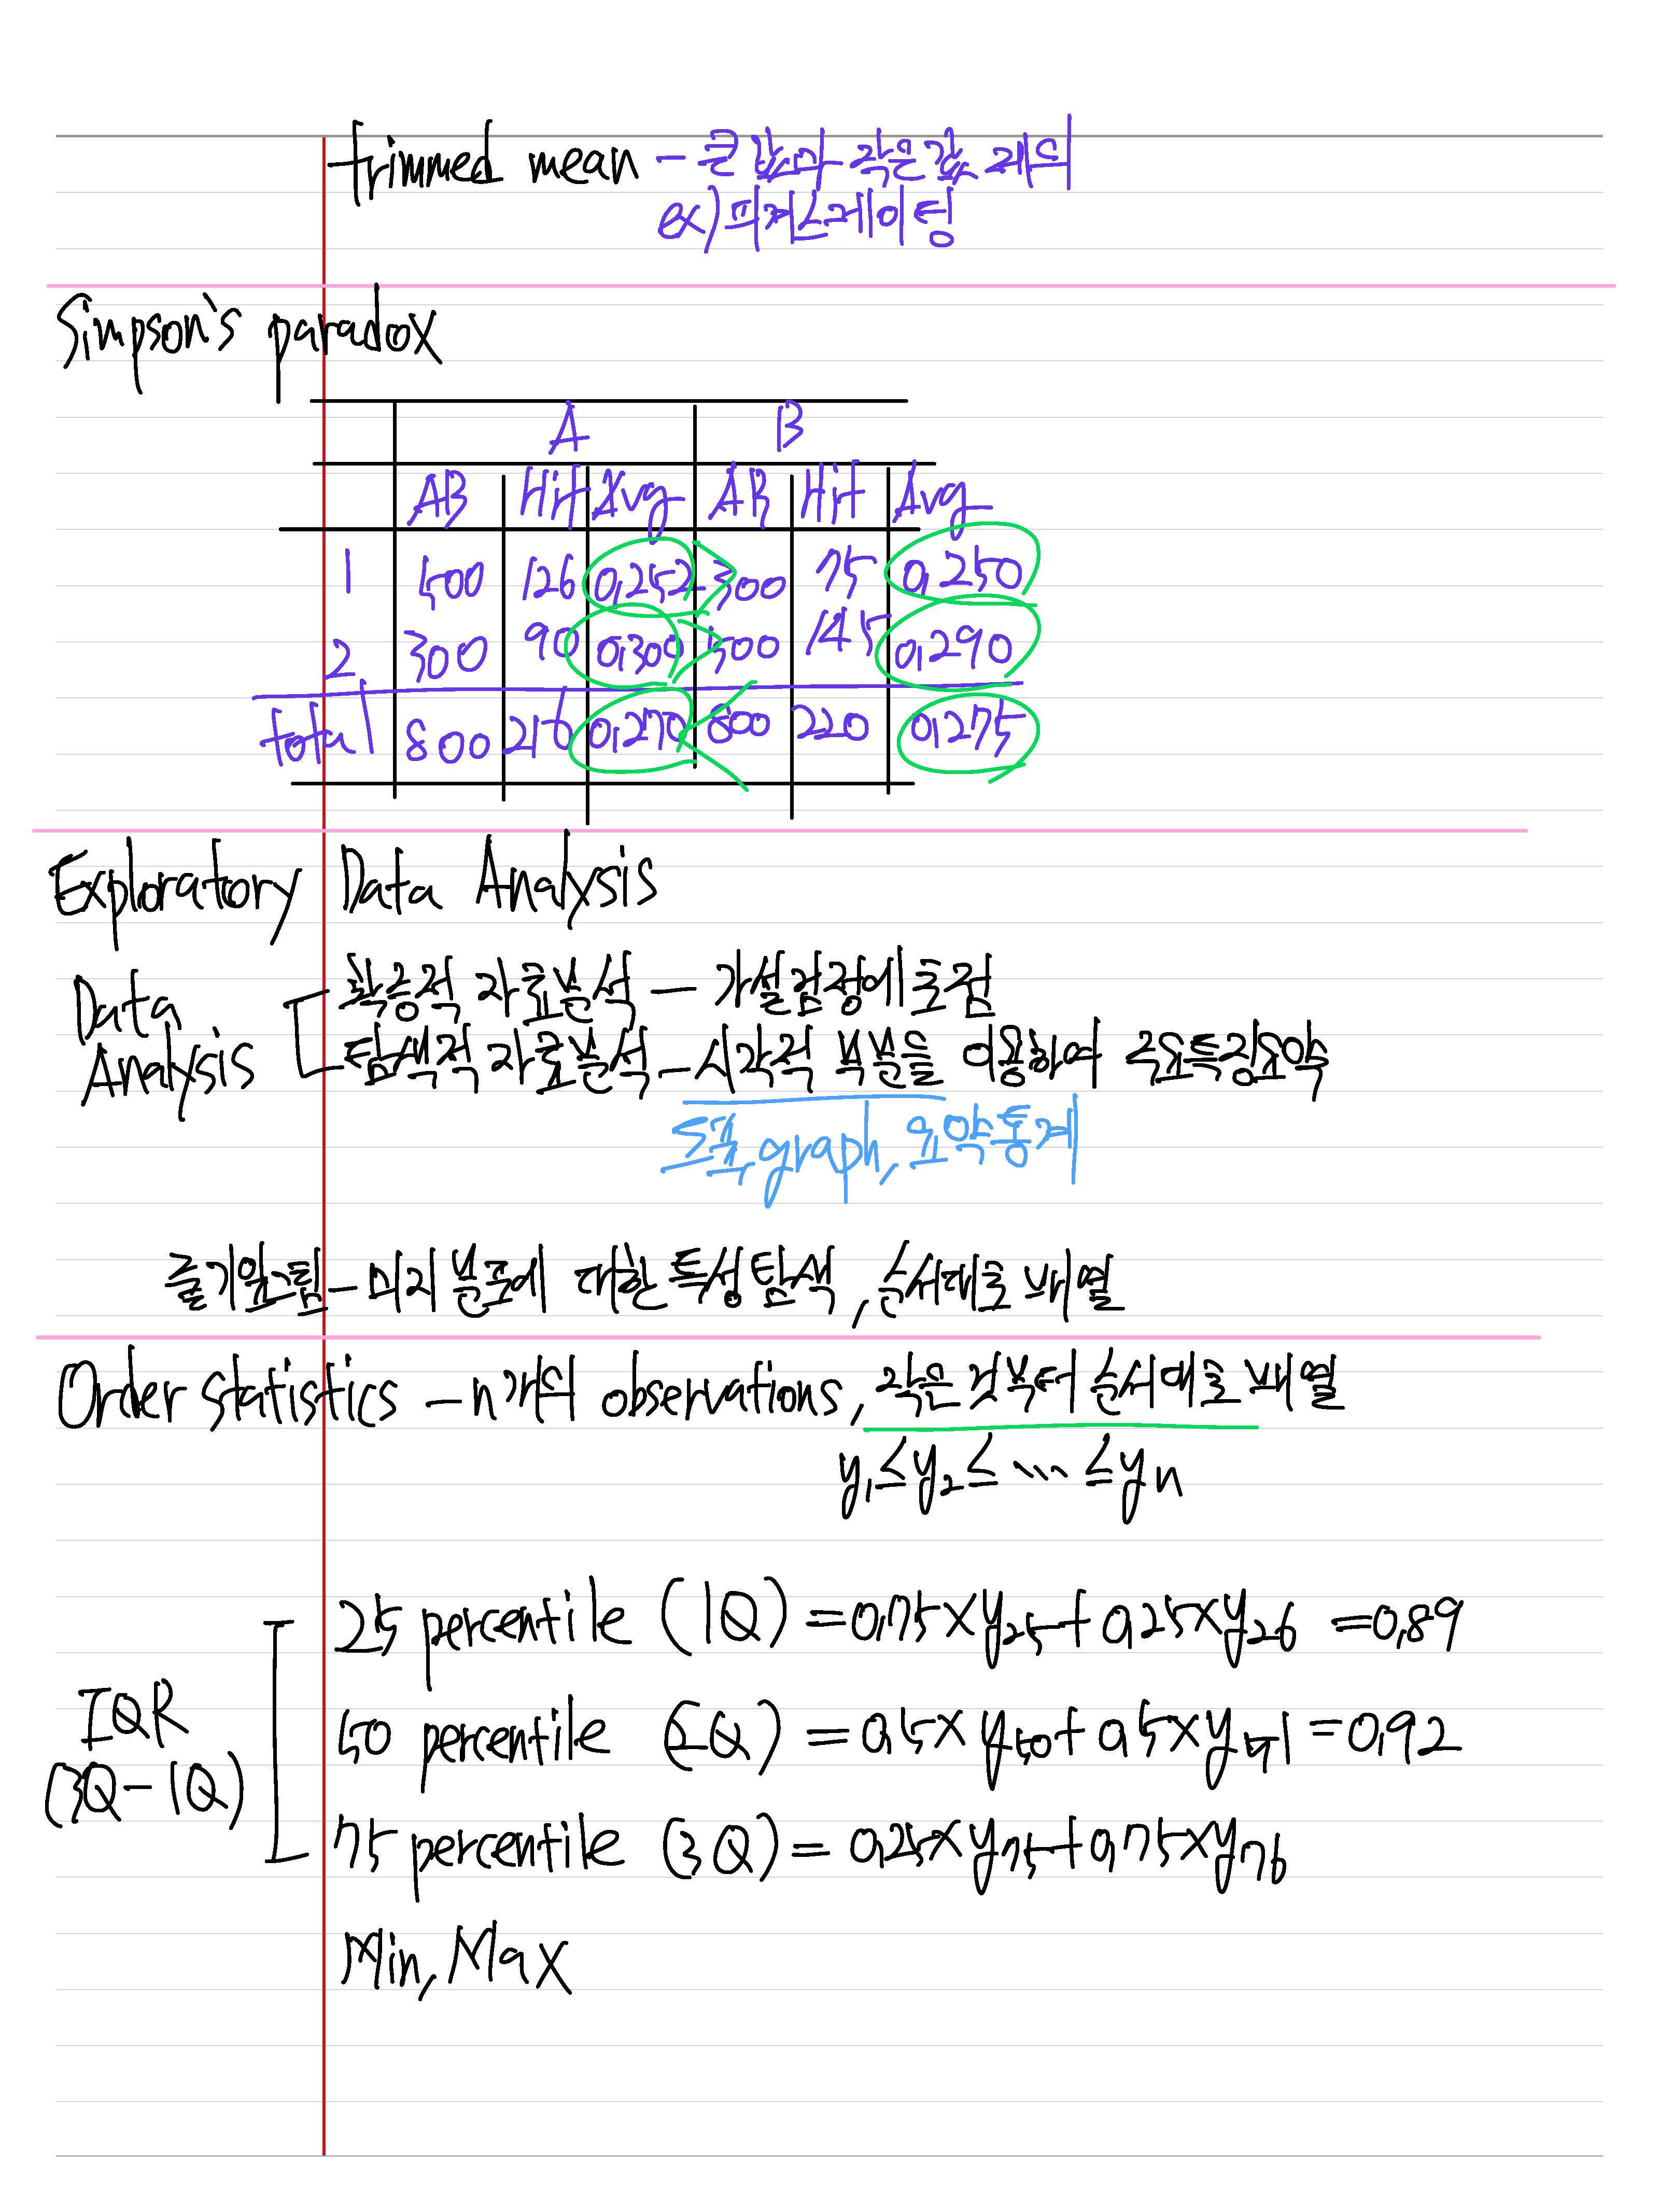 trimmed mean - 큰 값과 작은 값 제외
ex) 피겨스케이팅
Simpson's paradox
A B
AB Hit Avg AB Hit Avg
1 500 126 0.252 > 300 75 0.250
2 300 90 0.300 > 500 145 0.290
total 800 216 0.270 < 800 220 0.275
Exploratory Data Analysis
Data Analysis
확증적 자료분석 - 가설검정에 초점
탐색적 자료분석 - 시각적 부분을 이용하여 주요특징요약
도표, graph, 요약통계
줄기잎그림 - 미리 분포에 대한 특성탐색, 순서대로 배열
Order statistics - n개의 observations, 작은 것부터 순서대로 배열
y₁ ≤ y₂ ≤ ... ≤ yn
IQR
(3Q-1Q)
25 percentile (1Q) = 0.75×y₂₅+0.25×y₂₆ = 0.89
50 percentile (2Q) = 0.5×y₅₀+0.5×y₅₁ = 0.92
75 percentile (3Q) = 0.25×y₇₅+0.75×y₇₆
Min, Max